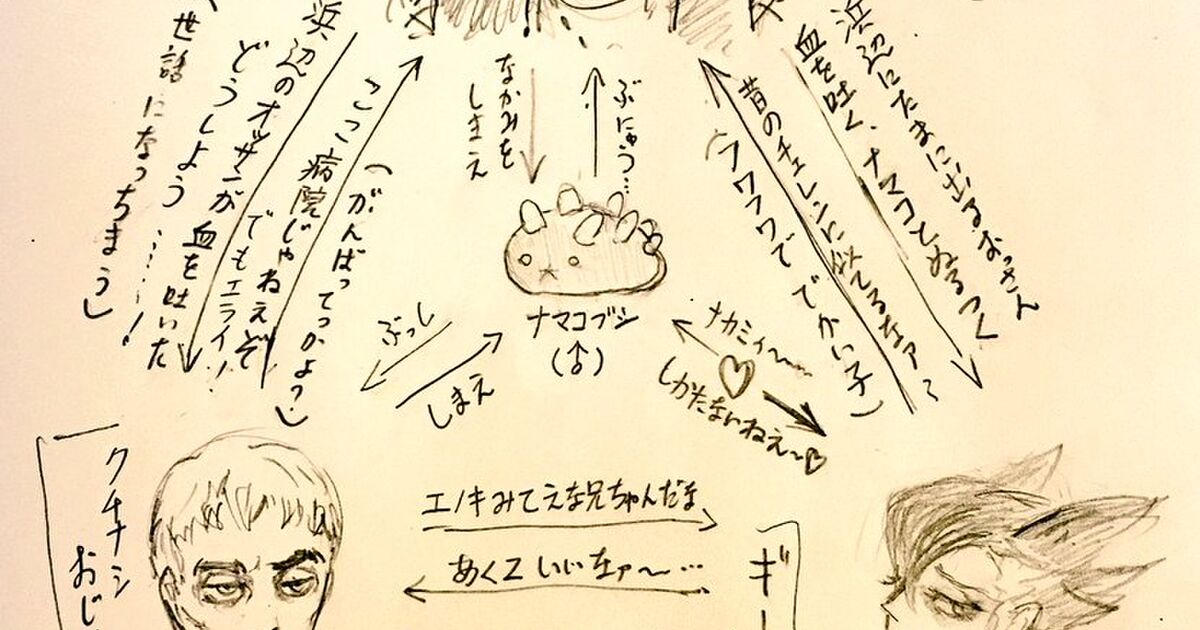 浜辺にたまに出るおっさん
血を吐く、ナマコとぬるつく
昔のチェレンに似てるなァ〜
(フワフワで でかい子)
ぶにゅう…
なかみを
しまえ
浜辺のオッサンが
どうしよう……!
血を吐いた
世話になっちまう」
ここ病院じゃねえぞ
でもエライ!
(がんばってっかよっ)
ナマコブシ
(♂)
ぶっし
しまえ
ナカミィ〜〜
しかたないねえ〜♡
クチナシ
おじ
エノキみてえな兄ちゃんだな
あくZいいなァ〜…
ギー